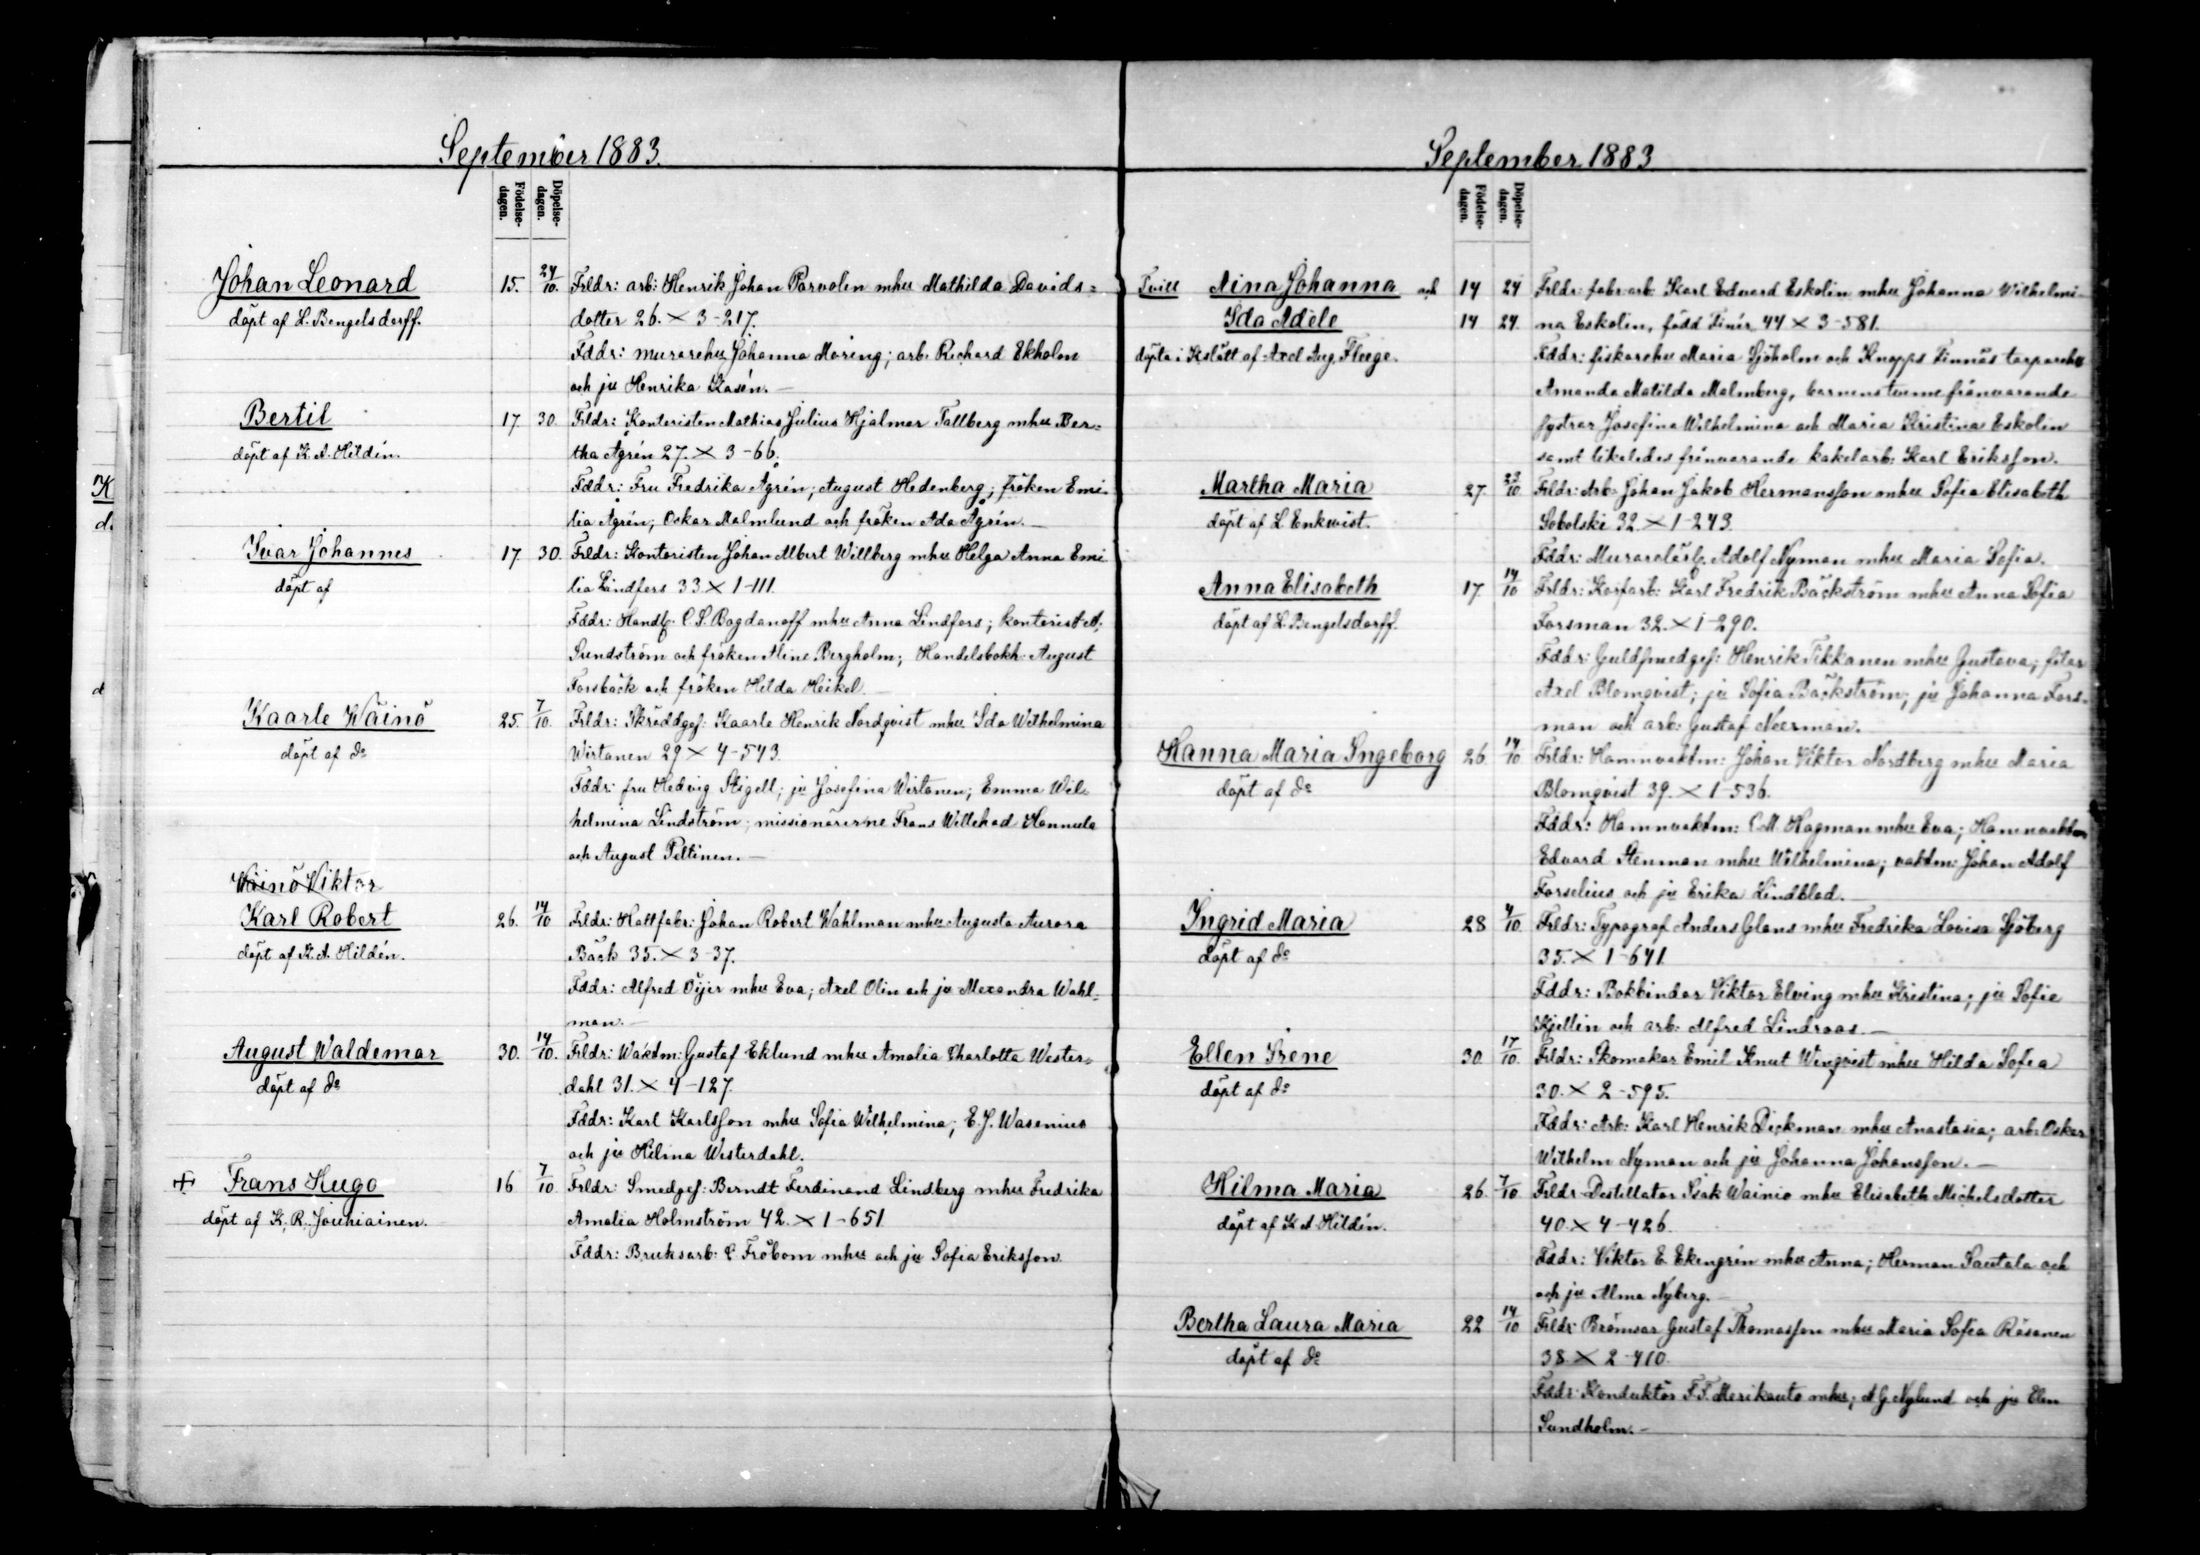 September 1883.
Födelse-
dagen.
Döpelse-
dagen.
Johan Leonard 15. 24/10. Frldr: arb: Henrik Johan Parvolen mhu Mathilda Davids=
döpt af L. Bengelsdorff. dotter 26. × 3-217.
Fddr: murarehu Johanna Moring; arb. Richard Ekholm
och ju Henrika Kasén.—
Bertil 17 30. Frldr: Kontoristen Mathias Julius Hjalmar Tallberg mhu Ber=
döpt af K. A. Hildén. tha Ågrén 27. × 3-66.
Fddr: Fru Fredrika Ågrén; August Hedenberg; fröken Emi-
lia Ågrén; Oskar Malmlund och fröken Ada Ågrén.—
Ivar Johannes 17 30. Frldr: Kontoristen Johan Albert Willberg mhu Helga Anna Emi-
döpt af lia Lindfors 33 × 1-111.
Fddr: Handl. C. S. Bogdanoff mhu Anna Lindfors; kontorist A.
Sundström och fröken Aline Bergholm; Handelsbokh: August
Forsbäck och fröken Hilda Heikel.—
Kaarle Wäinö 25. 7/10. Frldr: Skräddges: Kaarle Henrik Nordqvist mhu Ida Wilhelmina
döpt af do Wirtanen 29 × 4-543.
Fddr: fru Hedvig Stigell; ju Josefina Wirtanen; Emma Wil-
helmina Lindström; missionärerne Frans Willehad Hannula
och August Peltinen.—
Wäinö Viktor
Karl Robert 26. 14/10 Frldr: Hattfabr: Johan Robert Wahlman mhu Augusta Aurora
döpt af K. A. Hildén. Bäck 35. × 3-37.
Fddr: Alfred Öijer mhu Eva; Axel Olin och ju Alexandra Wahl=
man.—
August Waldemar 30. 14/10. Frldr: Waktm: Gustaf Eklund mhu Amalia Charlotta Wester=
döpt af do dahl 31. × 4-127.
Fddr: Karl Karlsson mhu Sofia Wilhelmina; E. J. Wasenius
och ju Hilma Westerdahl.
+ Frans Hugo 16 7/10 Frldr: Smedges: Berndt Ferdinand Lindberg mhu Fredrika
döpt af K. R. Jouhiainen. Amalia Holmström 42. × 1-651
Fddr: Bruksarb: C Fröbom mhu och ju Sofia Eriksson.
September 1883
Födelse-
dagen.
Döpelse-
dagen.
Tvill Nina Johanna och 14 24 Frldr: fabr arb: Karl Edvard Eskolin mhu Johanna Wilhelmi-
Ida Adéle 14 24. na Eskolin, född 44 × 3-581.
döpta i Kslätt af Axel Aug. Fleege. Fddr: fiskarehu Maria Sjöholm och Knopps Finnäs torparehu
Amanda Matilda Malmberg, barnens tvenne frånvarande
systrar Josefina Wilhelmina och Maria Kristina Eskolin
samt likaledes frånvarande kakelarb: Karl Eriksson.
Martha Maria 27 23/10 Frldr: Arb: Johan Jakob Hermansson mhu Sofia Elisabeth
döpt af L. Enkvist. Sobolski 32 × 1-243
Fddr: Murarelärl. Adolf Nyman mhu Maria Sofia.
Anna Elisabeth 17 14/10 Frldr: Korfarb: Karl Fredrik Bäckström mhu Anna Sofia
döpt af L. Bengelsdorff. Forsman 32. × 1-290.
Fddr: Guldsmedges: Henrik Tikkanen mhu Gustava; filar
Axel Blomqvist; ju Sofia Bäckström; ju Johanna Fors-
man och arb: Gustaf Neerman.
Hanna Maria Ingeborg 26. 14/10 Frldr: Hamnvaktm: Johan Viktor Nordberg mhu Maria
döpt af do Blomqvist 39. × 1-536.
Fddr: Hamnvaktm: C. M. Hagman mhu Eva; Hamnvaktm
Edvard Stenman mhu Wilhelmina; vaktm: Johan Adolf
Forselius och ju Erika Lindblad.—
Ingrid Maria 28 4/10. Frldr: Typograf Anders Glans mhu Fredrika Lovisa Sjöberg
döpt af do 35. × 1-641
Fddr: Bokbindar Viktor Elving mhu Kristina; ju Sofie
Kjellin och arb: Alfred Lindroos.—
Ellen Irene 30. 17/10. Frldr: Skomakar Emil Knut Winqvist mhu Hilda Sofia
döpt af do 30. × 2-595.
Fddr: Arb: Karl Henrik Dickman mhu Anastasia; arb: Oskar
Wilhelm Nyman och ju Johanna Johansson.—
Hilma Maria 26. 7/10. Frldr Destillator Isak Wainio mhu Elisabeth Michelsdotter
döpt af K A Hildén. 40. × 4-426.
Fddr: Viktor E. Ekengrén mhu Anna; Herman Santala och
och ju Alma Nyberg.—
Bertha Laura Maria 22 14/10 Frldr Brömsar Gustaf Thomasson mhu Maria Sofia Räsänen
döpt af do 38 × 2-410.
Fddr: Konduktör F. F. Merikanto mhu; A G Nylund och ju Elin
Sundholm.—